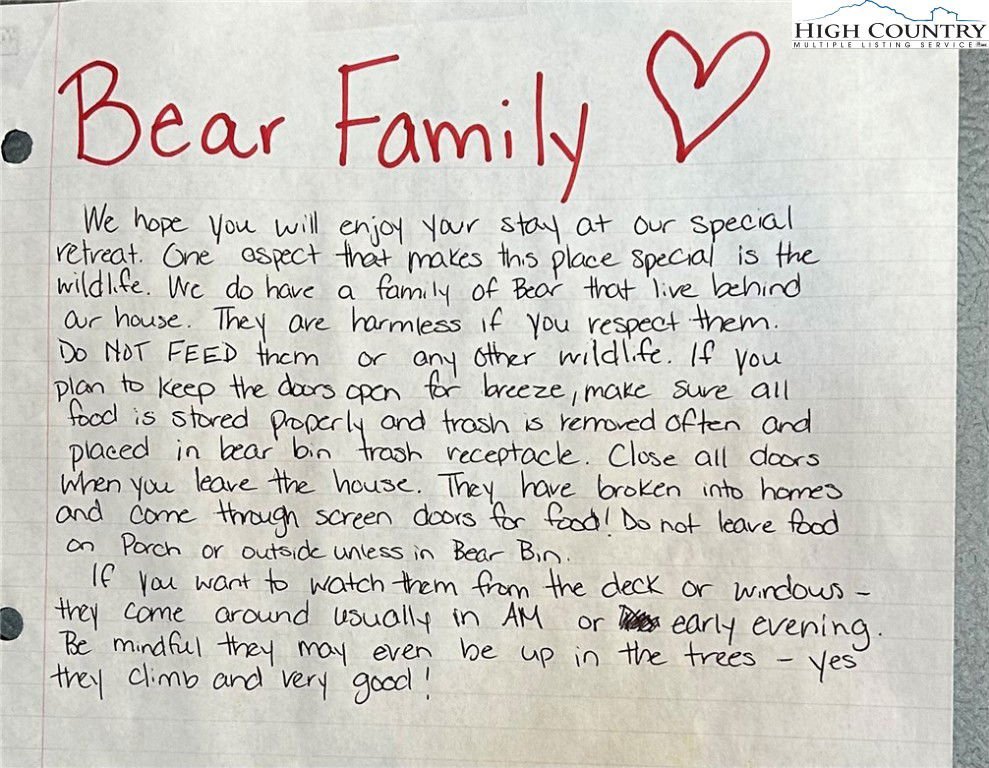 HIGH COUNTRY
MULTIPLE LISTING SERVICE
Bear Family
We hope you will enjoy your stay at our special
retreat. One aspect that makes this place special is the
wildlife. We do have a family of Bear that live behind
our house. They are harmless if you respect them.
DO NOT FEED them or any other wildlife. If you
plan to keep the doors open for breeze, make sure all
food is stored properly and trash is removed often and
placed in bear bin trash receptacle. Close all doors
when you leave the house. They have broken into homes
and come through screen doors for food! Do not leave food
on Porch or outside unless in Bear Bin.
If you want to watch them from the deck or windows -
they come around usually in AM or early evening.
Be mindful they may even be up in the trees - yes
they climb and very good!